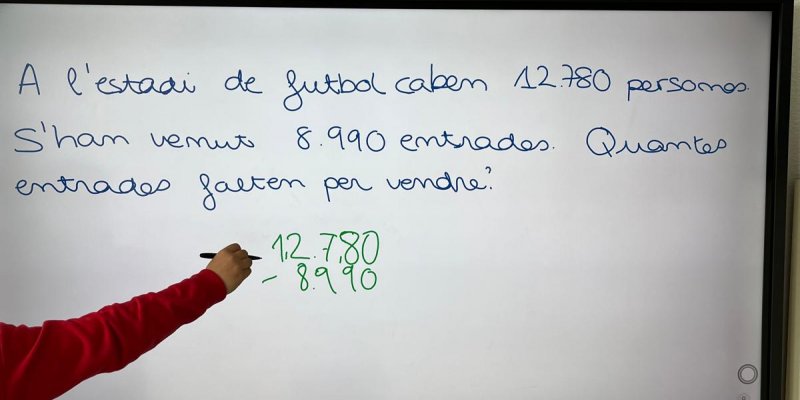 A l'estadi de futbol caben 12.780 persones.
S'han venut 8.990 entrades. Quantes
entrades falten per vendre?
12.780
- 8.990